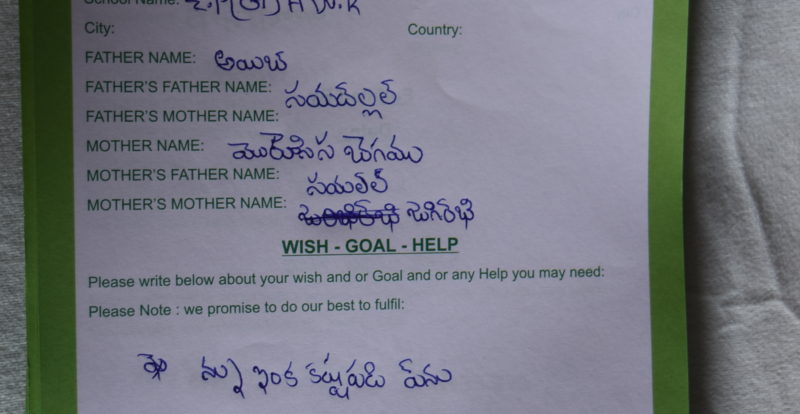 School Name: Z.P(G) H W.R
City: Country:
FATHER NAME: అయిబ
FATHER'S FATHER NAME: సయదల్లల్
FATHER'S MOTHER NAME:
MOTHER NAME: మొరూనిస బేగము
MOTHER'S FATHER NAME: సయలల్
MOTHER'S MOTHER NAME: జెగిరభి
WISH - GOAL - HELP
Please write below about your wish and or Goal and or any Help you may need:
Please Note : we promise to do our best to fulfil:
న్ను ఇంక కష్టపడి